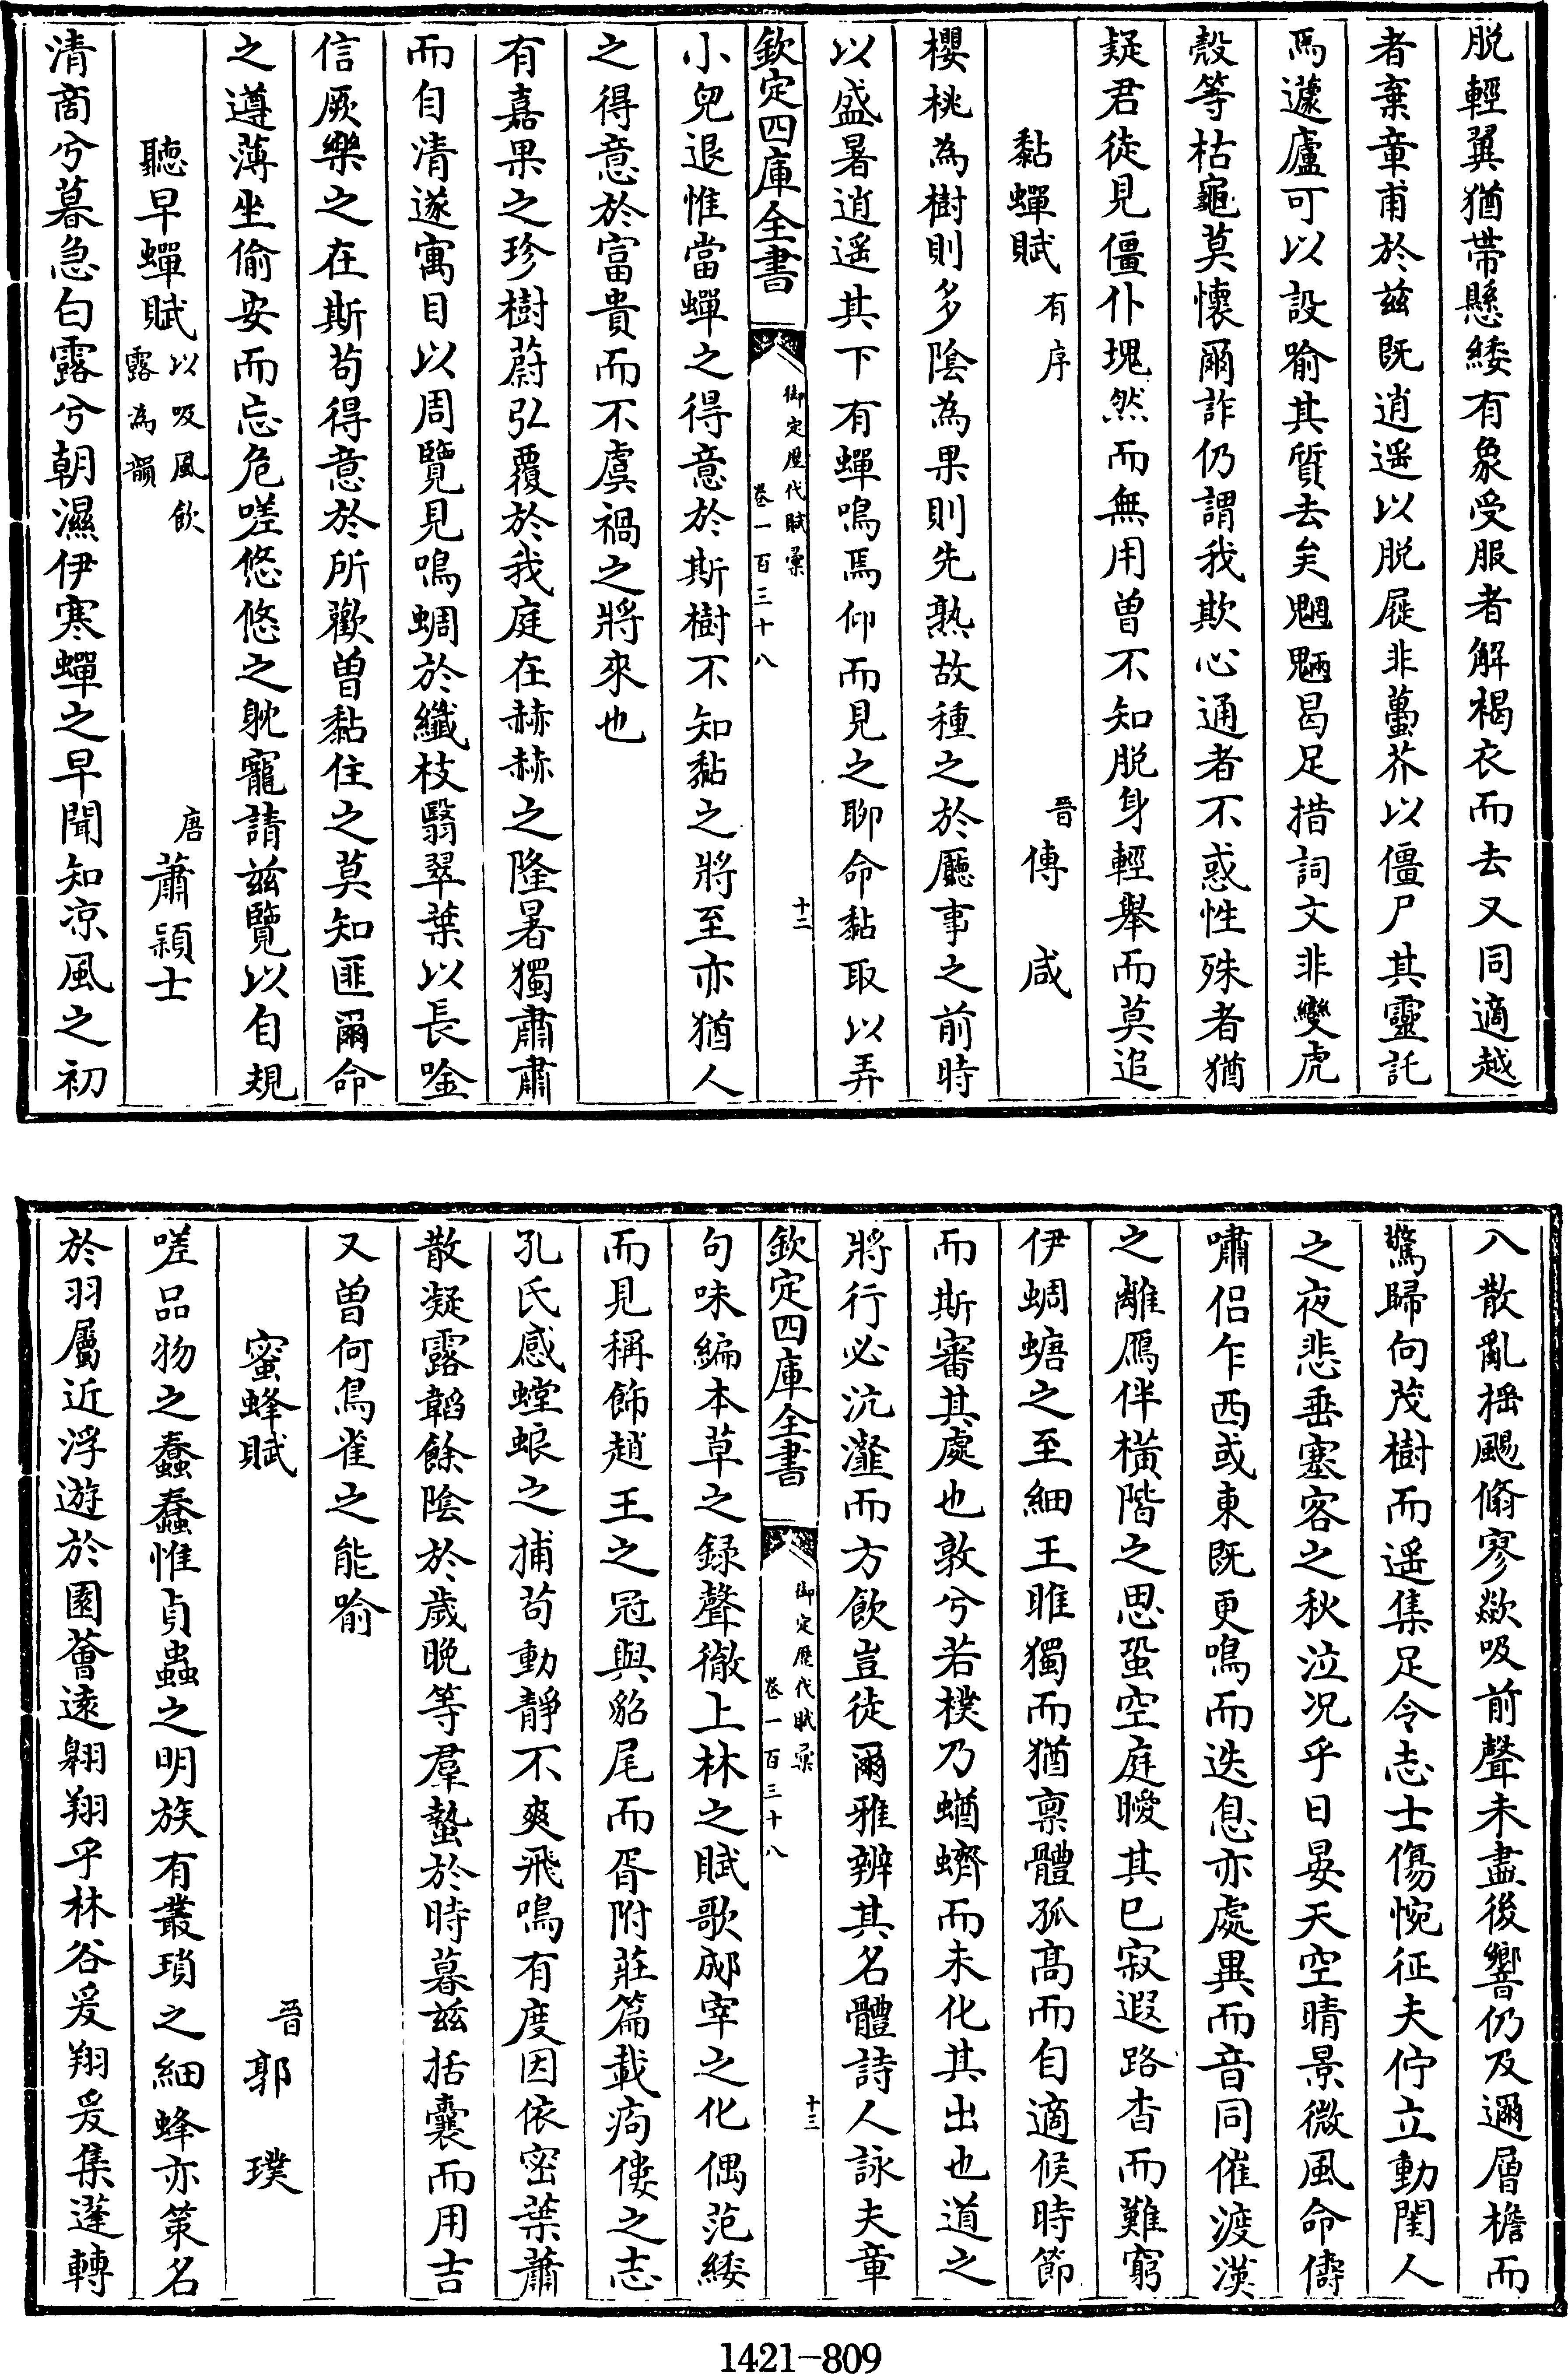 脱輕翼猶帶懸緌有象受服者解褐衣而去又同適越
者棄章甫於兹既逍遥以脱屣非蠆芥以僵尸其靈託
焉遽廬可以設喻其質去矣魍魎曷足措詞文非變虎
殼等枯龜莫懷爾詐仍謂我欺心通者不惑性殊者猶
疑君徒見僵仆塊然而無用曾不知脱身輕舉而莫追
黏蟬賦有序 晉傅咸
櫻桃為樹則多陰為果則先熟故種之於廳事之前時
以盛暑逍遥其下有蟬鳴焉仰而見之聊命黏取以弄
欽定四庫全書 御定歷代賦彙卷一百三十八 十二
小兒退惟當蟬之得意於斯樹不知黏之將至亦猶人
之得意於富貴而不虞禍之將來也
有嘉果之珍樹蔚弘覆於我庭在赫赫之隆暑獨肅肅
而自清遂寓目以周覽見鳴蜩於纖枝翳翠葉以長唫
信厥樂之在斯苟得意於所歡曾黏住之莫知匪爾命
之遵薄坐偷安而忘危嗟悠悠之躭寵請兹覽以自規
聽早蟬賦以吸風飲露為韻 唐蕭穎士
清商兮暮急白露兮朝濕伊寒蟬之早聞知凉風之初
入散亂摇颺翛寥歘吸前聲未盡後響仍及邇層檐而
驚歸向茂樹而遥集足令志士傷惋征夫佇立動閨人
之夜悲垂塞客之秋泣况乎日晏天空晴景微風命儔
嘯侣乍西或東既更鳴而迭息亦處異而音同催渡漢
之離鴈伴横階之思蛩空庭曖其已寂遐路杳而難窮
伊蜩螗之至細王睢獨而猶禀體孤高而自適候時節
而斯審其處也敦兮若樸乃蝤蠐而未化其出也道之
將行必沆瀣而方飲豈徒爾雅辨其名體詩人詠夫章
欽定四庫全書 御定歷代賦彙卷一百三十八 十三
句味編本草之録聲徹上林之賦歌郕宰之化偶范緌
而見稱飾趙王之冠與貂尾而胥附莊篇載痀僂之志
孔氏感螳蜋之捕苟動靜不爽飛鳴有度因依密葉蕭
散凝露韜餘陰於歲晚等羣蟄於時暮兹括囊而用吉
又曾何鳥雀之能喻
蜜蜂賦 晉郭璞
嗟品物之蠢蠢惟貞蟲之明族有叢瑣之細蜂亦策名
於羽屬近浮遊於園薈遠翱翔乎林谷爰翔爰集蓬轉
1421-809